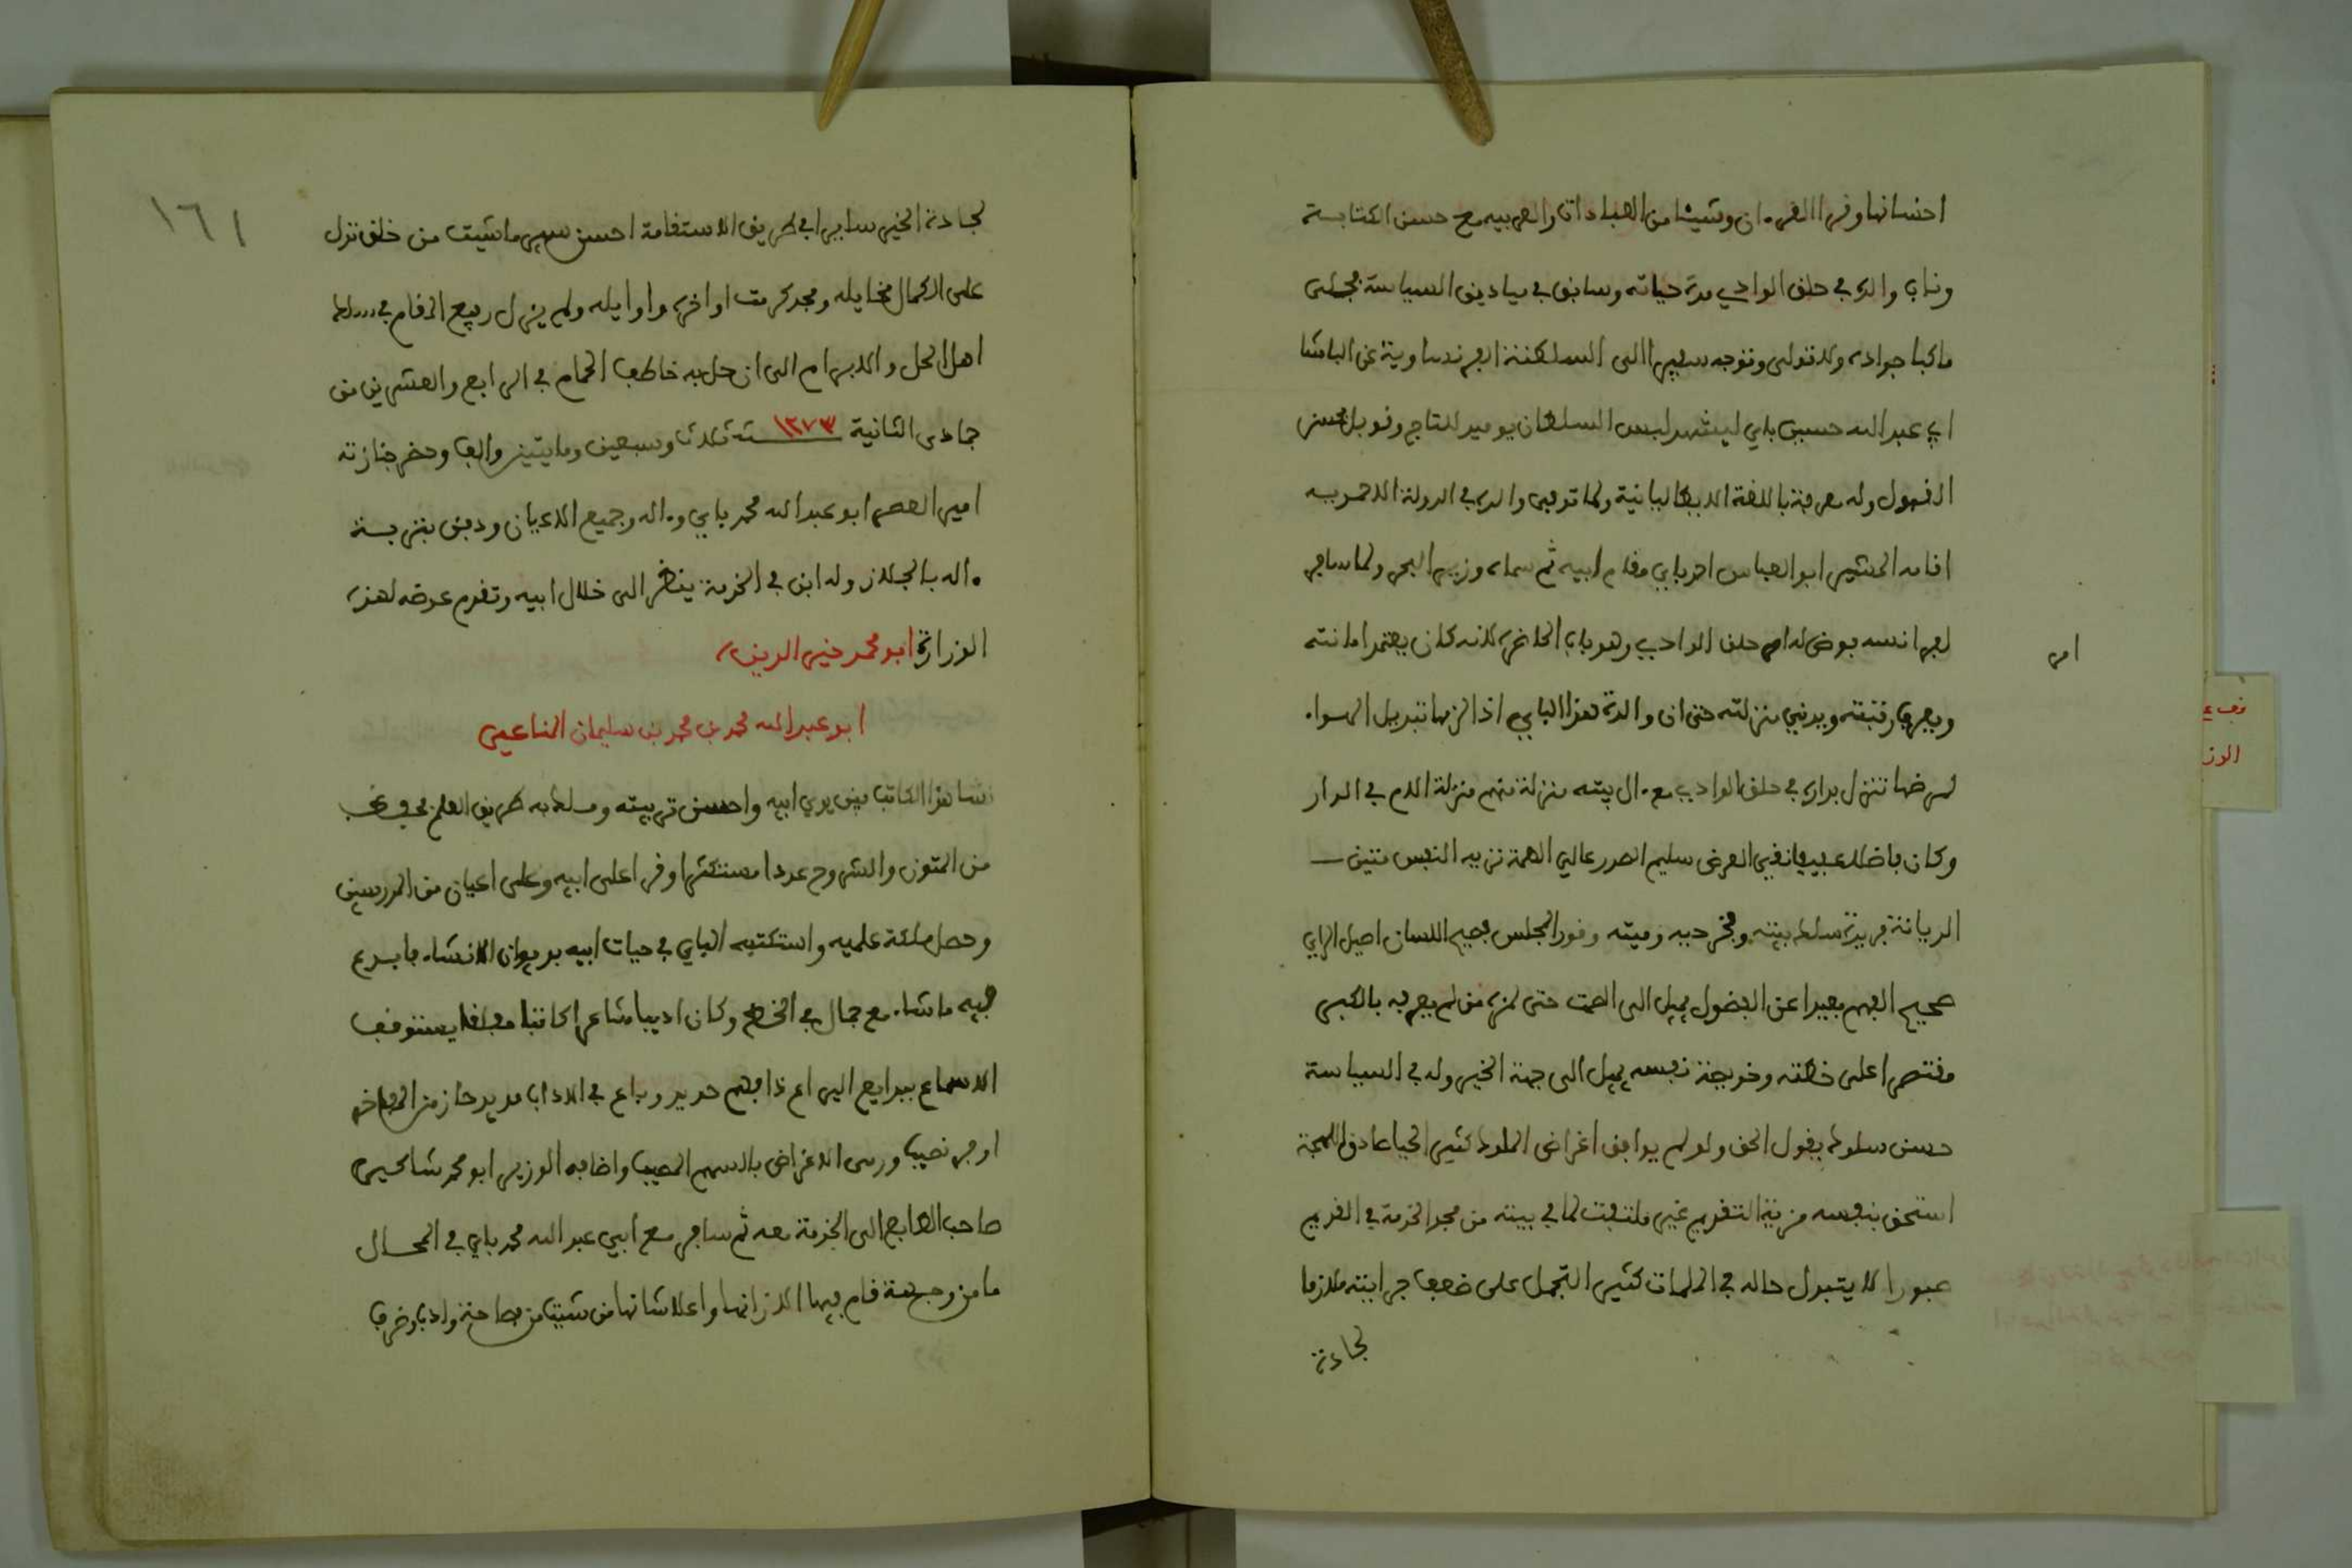 احسانها وقرا القرءان وشيئا من العبادات والعربية مع حسن الكتابة
وناب والده في حلق الوادي مدة حياته وسابق في ميادين السياسة مجلى
ما كبا جواده ولا تولى وتوجه سفيرا الى السلطنة الفرنساوية عن الباشا
ابي عبد الله حسين باي ليشهد لبس السلطان يوميد للتاج وقوبل بحسن
القبول وله معرفة باللغة الايطاليانية ولما توفى والده في الدولة الاحمدية
اقامه المشير ابو العباس احمد باي مقام ابيه ثم سماه وزير البحر ولما سافر
لفرانسة فوض له امر حلق الوادي وهو باب الحاضرة لانه كان يعتمد امانته
امر
ويعرف رتبته ويدني منزلته حتى ان والدة هذا الباي اذا الزمها تبديل الهواء
لمرضها تنزل بداره في حلق الوادي مع ءال بيته منزلة منهم منزلة الام في الدار
وكان فاضلا عفيفا نقي العرض سليم الصدر عالي الهمة نزيه النفس متين
الديانة فريدة سلك بيته وفخر حيه وميته وقور المجلس فصيح اللسان اصيل الراي
صحيح الفهم بعيدا عن الفضول يميل الى الصمت حتى لمزه من لم يعرفه بالكبر
مقتصرا على خطته وخويصة نفسه يميل الى جهة الخير وله في السياسة
حسن سلوك يقول الحق ولو لم يوافق اغراض الملوك كثير الحيا صادق اللهجة
استحق بنفسه مزية التقديم غير ملتفت لما في بيته من مجد الخدمة في القديم
صبورا لا يتبدل حاله في الملمات كثير التجمل على ضعف جرايته ملازما
لجادة
١٦١
لجادة الخير سايرا في طريق الاستقامة احسن سير ما شيت من خلق تزل
على الكمال مخايله ومجد كرمت اواخره واوايله ولم يزل رفيع المقام في سلك
اهل الحل والابرام الى ان حل به خاطف الحمام في الرابع والعشرين من
جمادى الثانية ١٢٧٣ سنة ثلاث وسبعين ومايتين والف وحضر جنازته
امير العصر ابو عبد الله محمد باي وءاله وجميع الاعيان ودفن بتربة
ءاله بالجلاز وله ابن في الخدمة ينظر الى خلال ابيه وتقدم عوضه لهذه
الوزارة ابو محمد خير الدين
ابو عبد الله محمد بن محمد بن سليمان المناعي
نشا هذا الكاتب بين يدي ابيه واحسن تربيته وسلك به طريق العلم
من المتون والشروح عددا مستكثرا وقرا على ابيه وعلى اعيان من المدرسين
وحصل ملكة علمية واستكتبه الباي في حيات ابيه بديوان الانشاء فابدع
فيه ما شاء مع جمال في الخط وكان اديبا شاعرا كاتبا مفلقا يستوقف
الاسماع ببدايع اليراع ذا فهم حديد وباع في الاداب مديد حاز من المفاخر
اوفر نصيب ورمى الاغراض بالسهم المصيب واضافه الوزير ابو محمد شاكير
صاحب الطابع الى الخدمة معه ثم سافر مع ابي عبد الله محمد باي في المحال
ما من وجهة قام فيها الا زانها واعلا شانها من شيت من فصاحة وادب وظرف